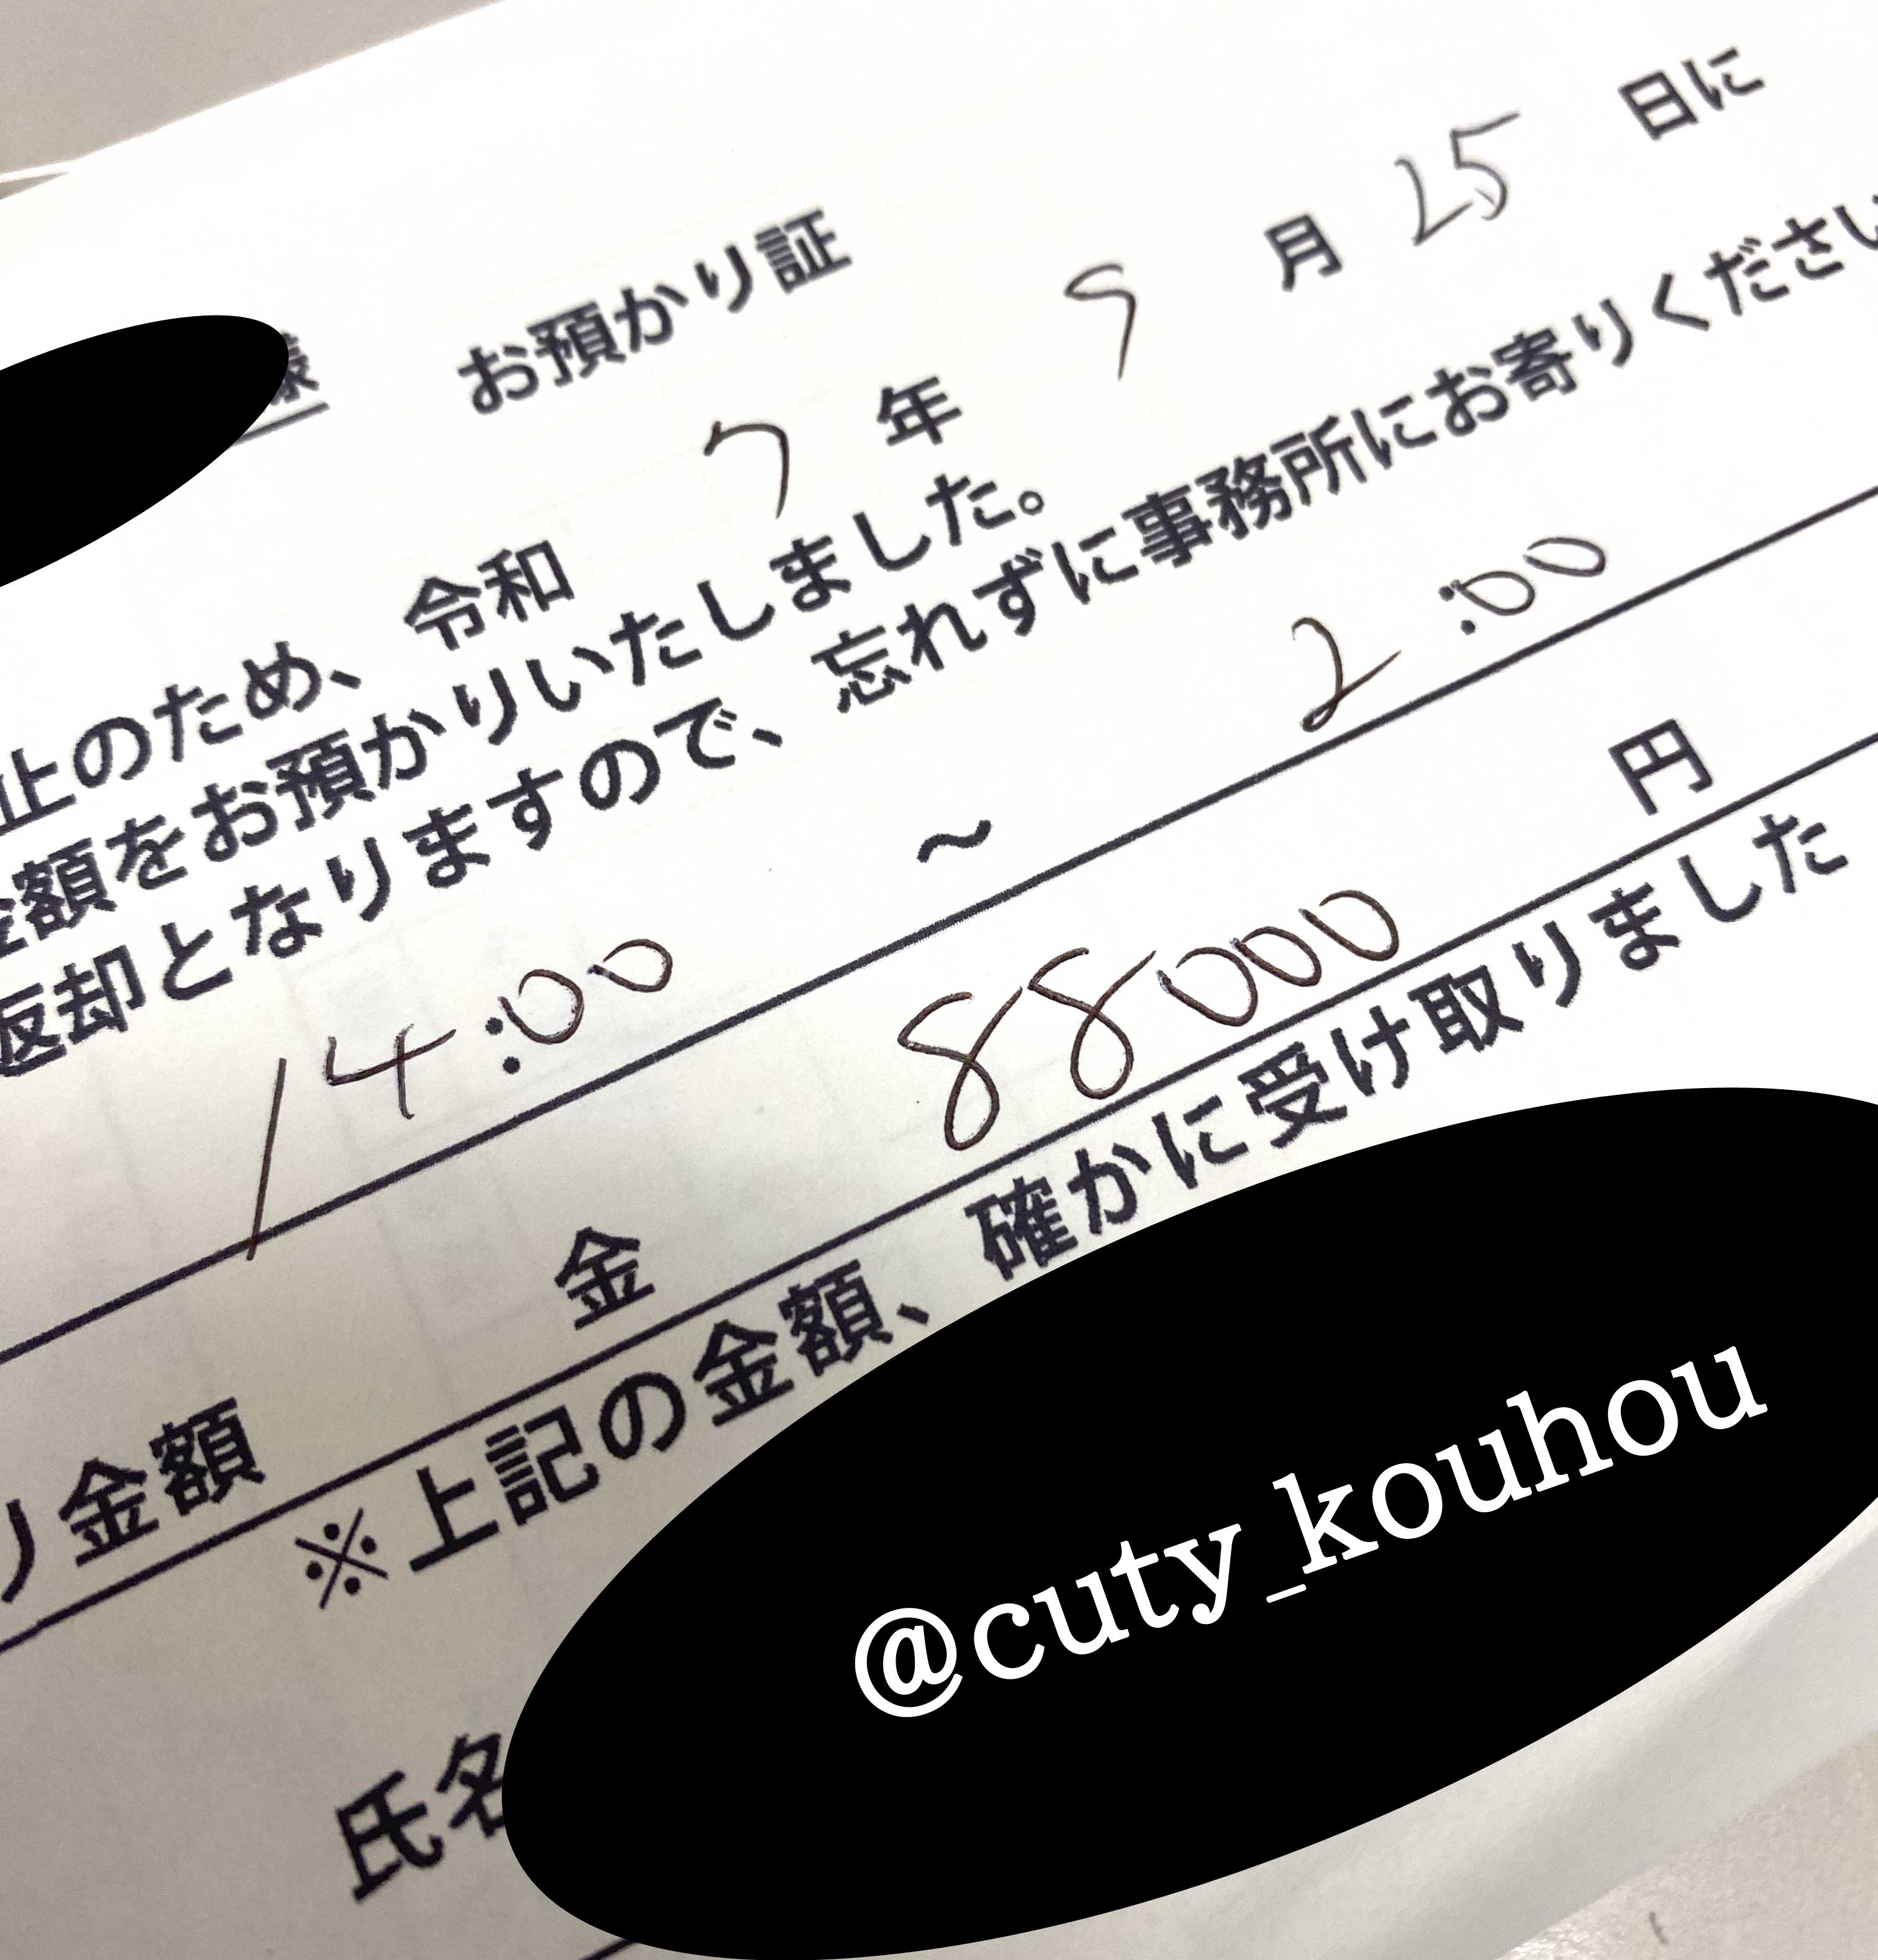 様 お預かり証
止のため、令和 7 年 9 月 25 日に
金額をお預かりいたしました。
返却となりますので、忘れずに事務所にお寄りください
14:00 ~ 2:00
り金額 金 88000 円
※上記の金額、確かに受け取りました
氏名
@cuty_kouhou